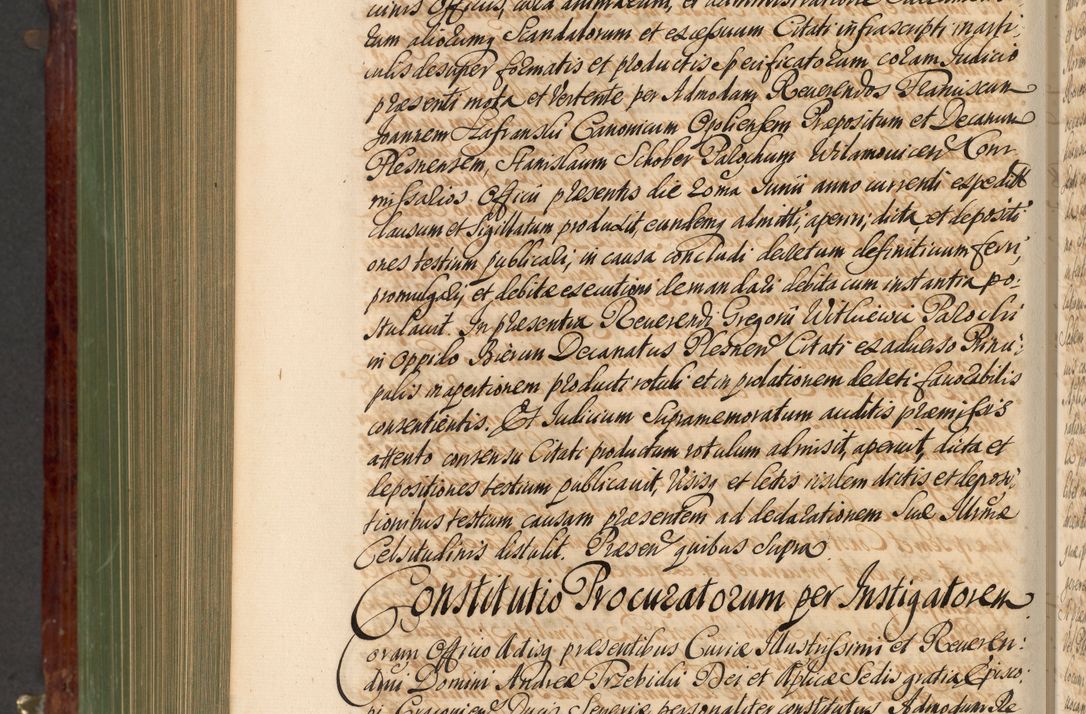 cunis Officii, cura animarum, et administratione
tum aliorumq Scandalorum et excessuum Citati infrascripti parti,
culis desuper formatis et productis specificatorum coram Judicio
præsenti mota et Vertente per Admodum Reuerendos Franciscum
Joannem Lafranskii Canonicum Opoliensem Præpositum et Decanum
Plesnensem, Stanislaum Schober Parochum Wilamouicen Com:
missarios Officii præsentis die 20ma Junii anno currenti expedit
clausum et Sigillatum produxit, eundemq admitti, aperiri, dicta, et depositi
ones testium publicari, in causa concludi decretum definitiuum ferri,
promulgariq et debitæ executioni demandari debita cum instantia po:
stulauit. In præsentia Reuerendi Gregorii Witkieiwic Parochi
in oppido Bierun Decanatus Plesnen Citati ex aduerso Princi:
palis in apertionem producti rotuli et in prolationem decreti fauorabilis
consentientis. Et Judicium Supramemoratum auditis præmissis
attento consensu Citati productum rotulum admisit, aperuit, dicta et
depositiones testium publicauit, Visisq et lectis iisdem dictis et deposi,
tionibus testium causam præsentem ad declarationem Suæ Illrmæ
Celsitudinis distulit. Præsen quibus supra
Constitutio Procuratorum per Instigatorem
Coram Officio Actisq præsentibus Curiæ Illustrissimi et Reueren:
dmi Domini Andreæ Trzebicki Dei et Aplicæ Sedis gratia Episco:
pi Cracouien Ducis Seueriæ personaliter constitutus Admodum Re